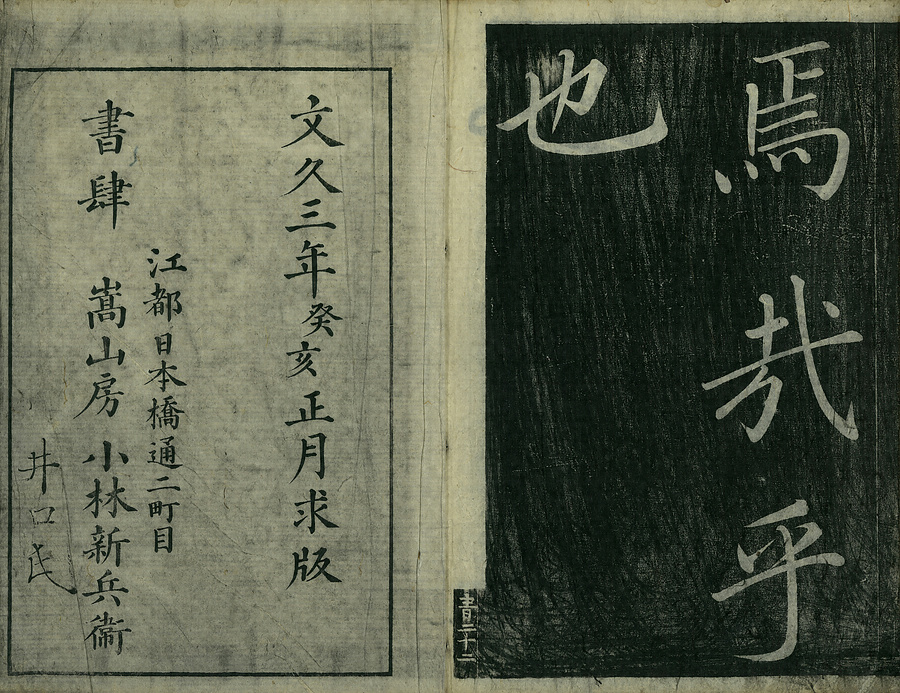 焉哉乎
也
青二十二
文久三年癸亥正月求版
江都日本橋通二町目
書肆 嵩山房 小林新兵衞
井口氏